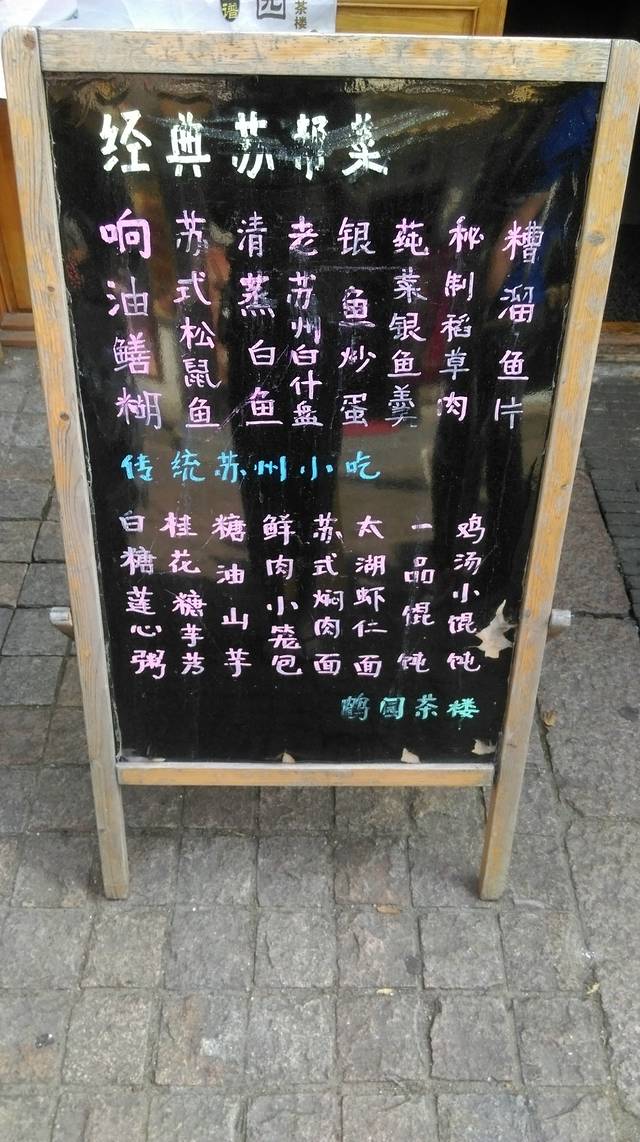 谱
园
茶楼
经典苏帮菜
响油鳝糊
苏式松鼠鱼
清蒸白鱼
老苏州白什盘
银鱼炒蛋
莼菜银鱼羹
秘制稻草肉
糟溜鱼片
传统苏州小吃
白糖莲心粥
桂花糖芋艿
糖油山芋
鲜肉小笼包
苏式焖肉面
太湖虾仁面
一品馄饨
鸡汤小馄饨
鹤园茶楼